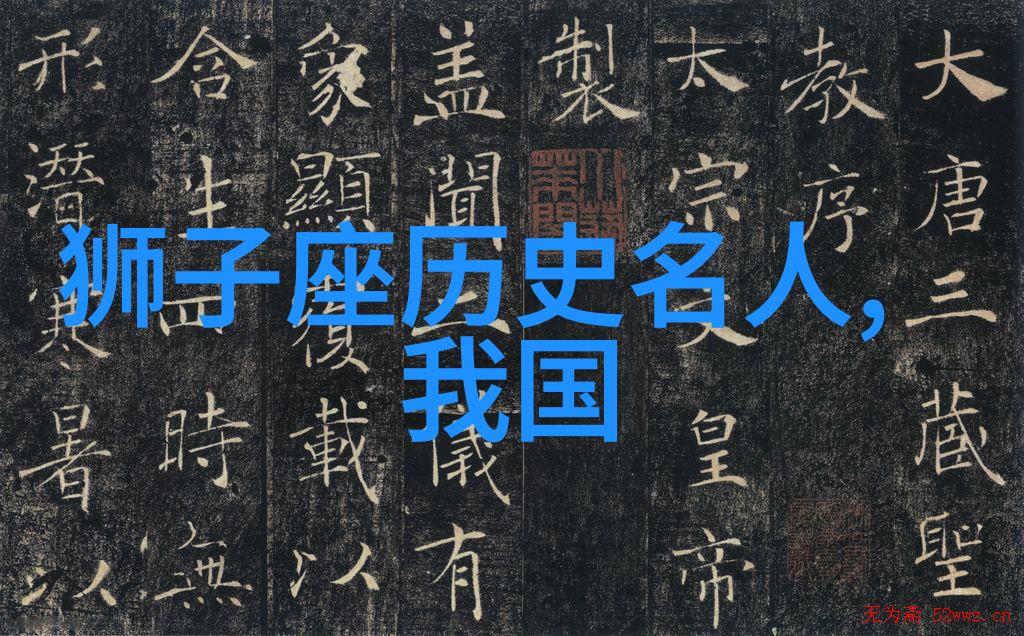 大唐三藏聖
教序
太宗文皇帝
製
盖聞二儀有
象顯覆載以
含生四時無
形潛寒暑以
狮子座历史名人,
我国
无为斋 52wwz.cn